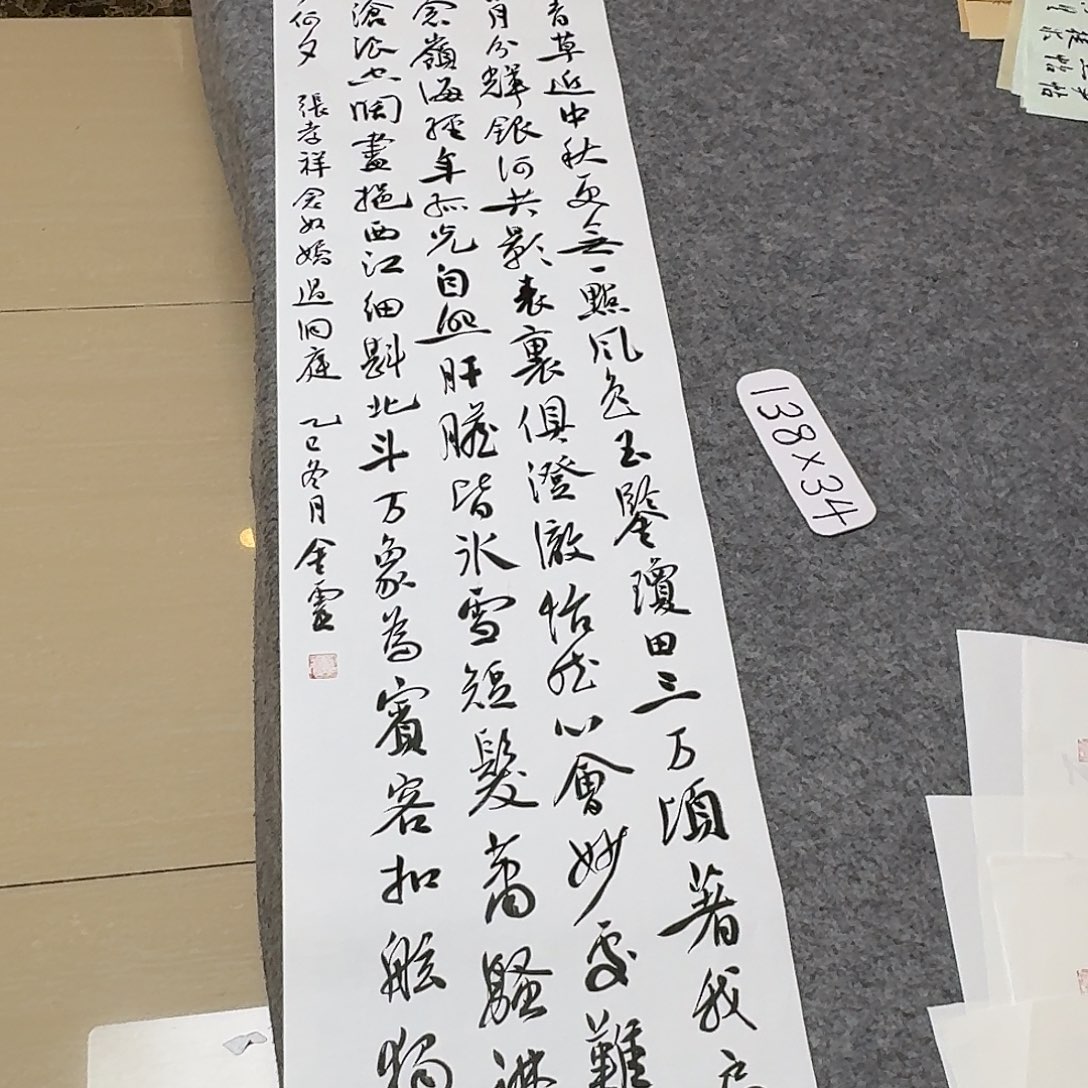 青草近中秋更無一點風色玉鑒瓊田三万頃著我
月分輝銀河共影表裏俱澄澈怡然心會妙處難
念嶺海經年孤光自照肝膽皆冰雪短髮蕭騷襟
滄浪空闊盡挹西江細斟北斗万象為賓客扣舷獨
何夕 張孝祥念奴嬌過洞庭 乙巳冬月金靈
138×34